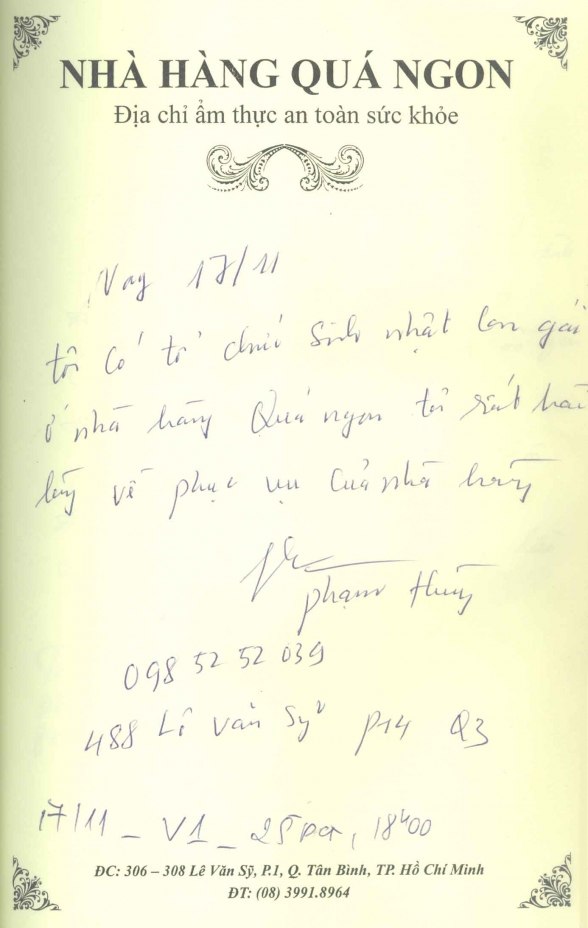 NHÀ HÀNG QUÁ NGON
Địa chỉ ẩm thực an toàn sức khỏe
Nay 17/11
tôi Có tổ chức Sinh nhật Con gái
ở nhà hàng Quá ngon tôi rất hài
lòng về phục vụ Của nhà hàng
phạm Hùng
098 52 52 039
488 Lê Văn Sỹ P14 Q3
17/11 _ V1 _ 25 pax, 18h00
ĐC: 306 – 308 Lê Văn Sỹ, P.1, Q. Tân Bình, TP. Hồ Chí Minh
ĐT: (08) 3991.8964